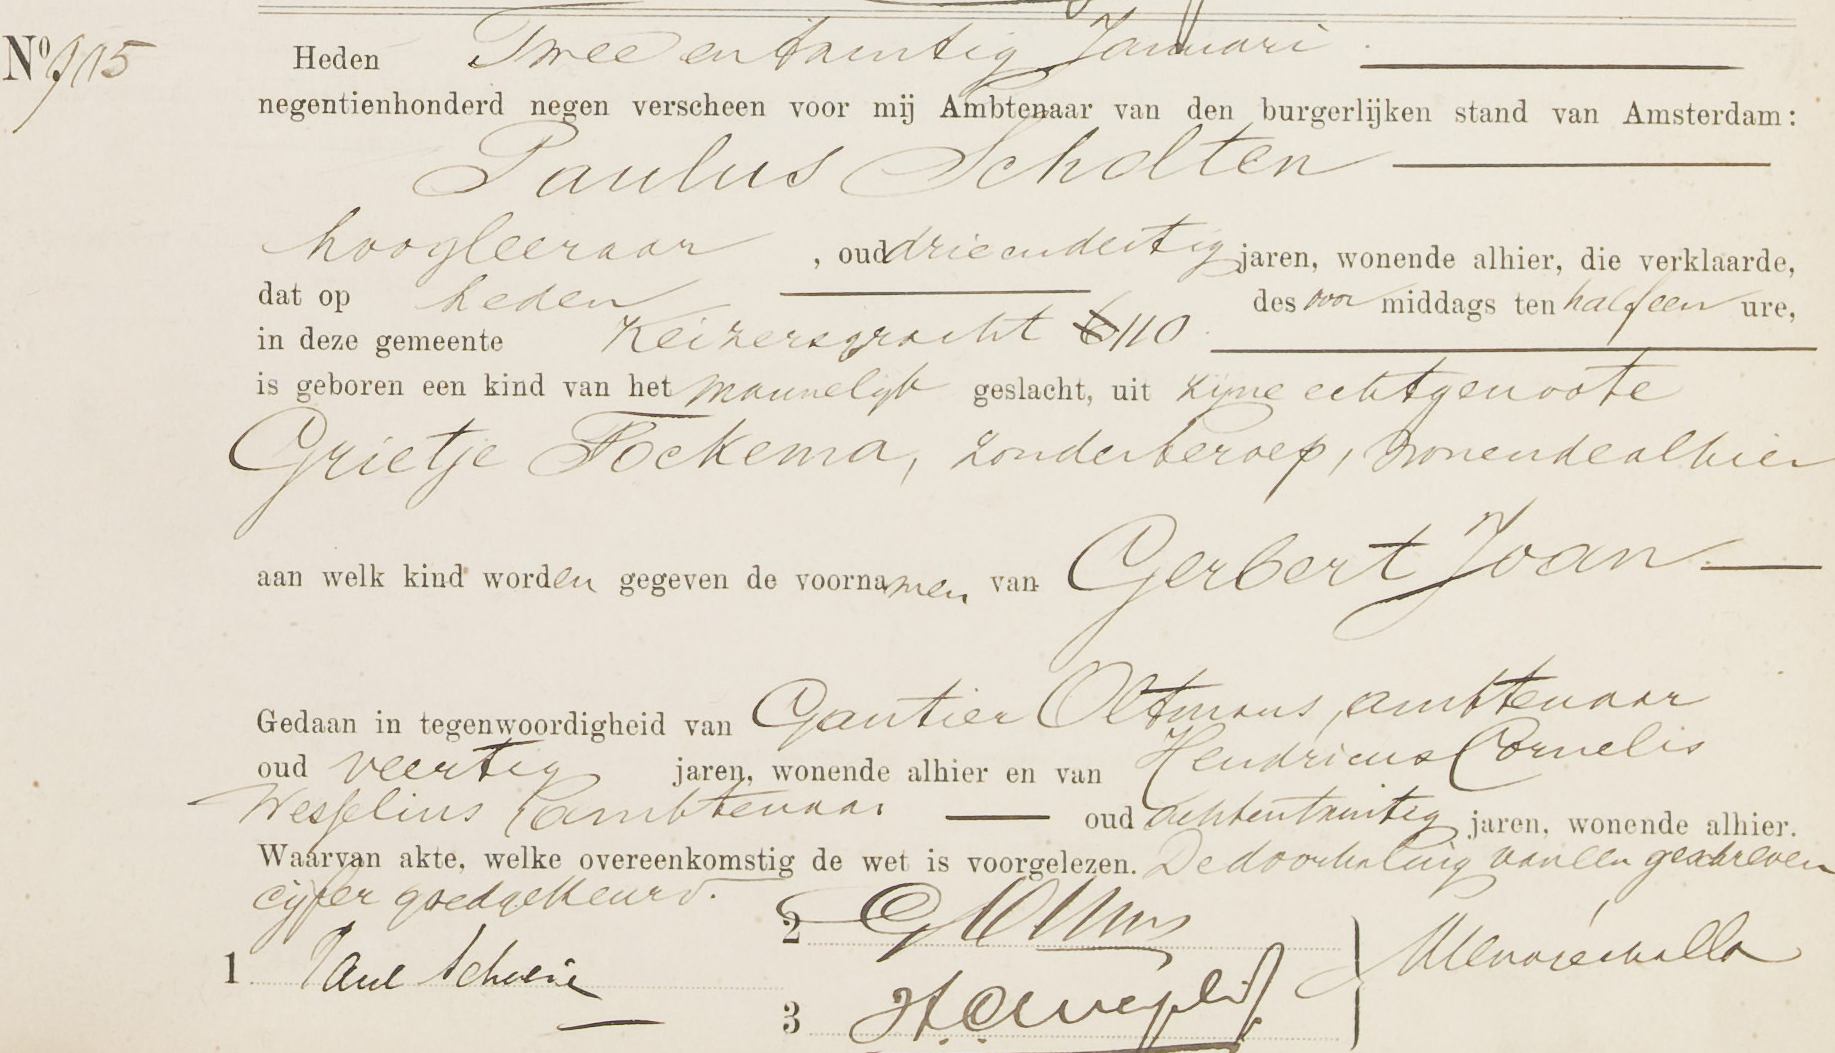 Nº 915
Heden Twee en twintig Januari
negentienhonderd negen verscheen voor mij Ambtenaar van den burgerlijken stand van Amsterdam:
Paulus Scholten
hoogleeraar, oud drieendertig jaren, wonende alhier, die verklaarde,
dat op heden des voor middags ten half een ure,
in deze gemeente Keizersgracht 110
is geboren een kind van het mannelijk geslacht, uit zijne echtgenoote
Grietje Fockema, zonder beroep, wonende alhier
aan welk kind worden gegeven de voornamen van Gerbert Joan
Gedaan in tegenwoordigheid van Gautier Oltmans, ambtenaar
oud veertig jaren, wonende alhier en van Hendricus Cornelis
Wesselius ambtenaar oud achtentwintig jaren, wonende alhier.
Waarvan akte, welke overeenkomstig de wet is voorgelezen. De doorhaling van een geschreven
cijfer goedgekeurd.
2
1 Paul Scholten
3